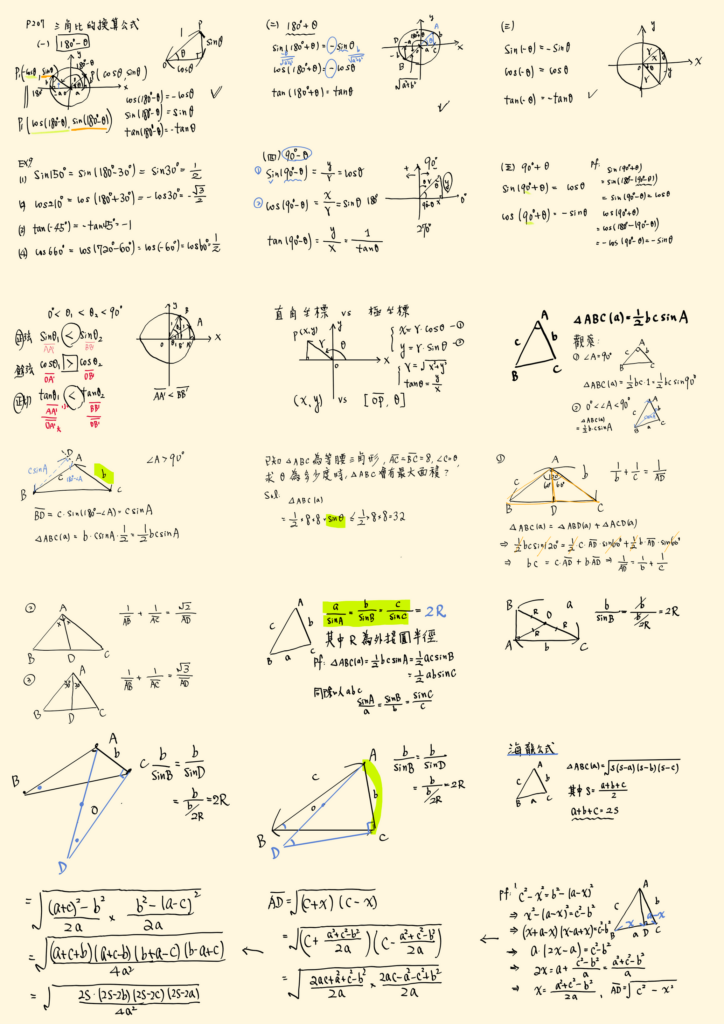 P207 三角比的換算公式
(一) 180°-θ
P'(-cosθ, sinθ)
P(cosθ, sinθ)
180°-θ
P'(cos(180°-θ), sin(180°-θ))
cos(180°-θ) = -cosθ
sin(180°-θ) = sinθ
tan(180°-θ) = -tanθ
P
1
sinθ
θ
cosθ
(二) 180°+θ
sin(180°+θ) = -sinθ
cos(180°+θ) = -cosθ
tan(180°+θ) = tanθ
(三)
sin(-θ) = -sinθ
cos(-θ) = cosθ
tan(-θ) = -tanθ
EX9
(1) sin150° = sin(180°-30°) = sin30° = 1/2
(2) cos210° = cos(180°+30°) = -cos30° = -√3/2
(3) tan(-45°) = -tan45° = -1
(4) cos660° = cos(720°-60°) = cos(-60°) = cos60° = 1/2
(四) 90°-θ
① sin(90°-θ) = y/r = cosθ
② cos(90°-θ) = x/r = sinθ
tan(90°-θ) = y/x = 1/tanθ
90°
180°
0°
270°
(五) 90°+θ
sin(90°+θ) = cosθ
cos(90°+θ) = -sinθ
pf: sin(90°+θ)
= sin(180°-(90°-θ))
= sin(90°-θ) = cosθ
cos(90°+θ)
= cos(180°-(90°-θ))
= -cos(90°-θ) = -sinθ
0° < θ₁ < θ₂ < 90°
正弦 sinθ₁ < sinθ₂
AA' BB'
餘弦 cosθ₁ > cosθ₂
OA' OB'
正切 tanθ₁ < tanθ₂
AA'/OA' BB'/OB'
AA' < BB'
直角坐標 vs 極坐標
P(x,y)
x = r·cosθ -①
y = r·sinθ -②
r = √x²+y²
tanθ = y/x
(x, y) vs [OP, θ]
△ABC(a) = 1/2 bc sinA
觀察:
① ∠A=90°
△ABC(a) = 1/2 bc·1 = 1/2 bc sin90°
② 0°<∠A<90°
△ABC(a)
= 1/2 b·csinA
∠A > 90°
csinA
180°-A
BD = c·sin(180°-∠A) = csinA
△ABC(a) = b·csinA·1/2 = 1/2 bcsinA
已知△ABC為等腰三角形, AC=BC=8, ∠C=θ,
求θ為多少度時, △ABC會有最大面積?
Sol: △ABC(a)
= 1/2×8×8×sinθ ≤ 1/2×8×8 = 32
①
120°
60° 60°
1/b + 1/c = 1/AD
△ABC(a) = △ABD(a) + △ACD(a)
⇒ 1/2 bcsin120° = 1/2 c·AD·sin60° + 1/2 b·AD·sin60°
⇒ bc = c·AD + bAD ⇒ 1/AD = 1/b + 1/c
② 1/AB + 1/AC = √2/AD
③ 1/AB + 1/AC = √3/AD
a/sinA = b/sinB = c/sinC = 2R
其中R為外接圓半徑
pf: △ABC(a) = 1/2 bcsinA = 1/2 acsinB
= 1/2 absinC
同除以abc
sinA/a = sinB/b = sinC/c
b/sinB = b/(b/2R) = 2R
b/sinB = b/sinD
= b/(b/2R) = 2R
b/sinB = b/sinD
= b/(b/2R) = 2R
海龍公式
△ABC(a) = √s(s-a)(s-b)(s-c)
其中 s = (a+b+c)/2
a+b+c = 2s
= √((a+c)²-b²)/2a × (b²-(a-c)²)/2a
= √(a+c+b)(a+c-b)(b+a-c)(b-a+c)/4a²
= √2s·(2s-2b)(2s-2c)(2s-2a)/4a²
AD = √(c+x)(c-x)
= √(c+(a²+c²-b²)/2a)(c-(a²+c²-b²)/2a)
= √(2ac+a²+c²-b²)/2a × (2ac-a²-c²+b²)/2a
pf: c²-x² = b²-(a-x)²
⇒ x²-(a-x)² = c²-b²
⇒ (x+a-x)(x-a+x) = c²-b²
⇒ a·(2x-a) = c²-b²
⇒ 2x = a + (c²-b²)/a = (a²+c²-b²)/a
⇒ x = (a²+c²-b²)/2a, AD = √c²-x²